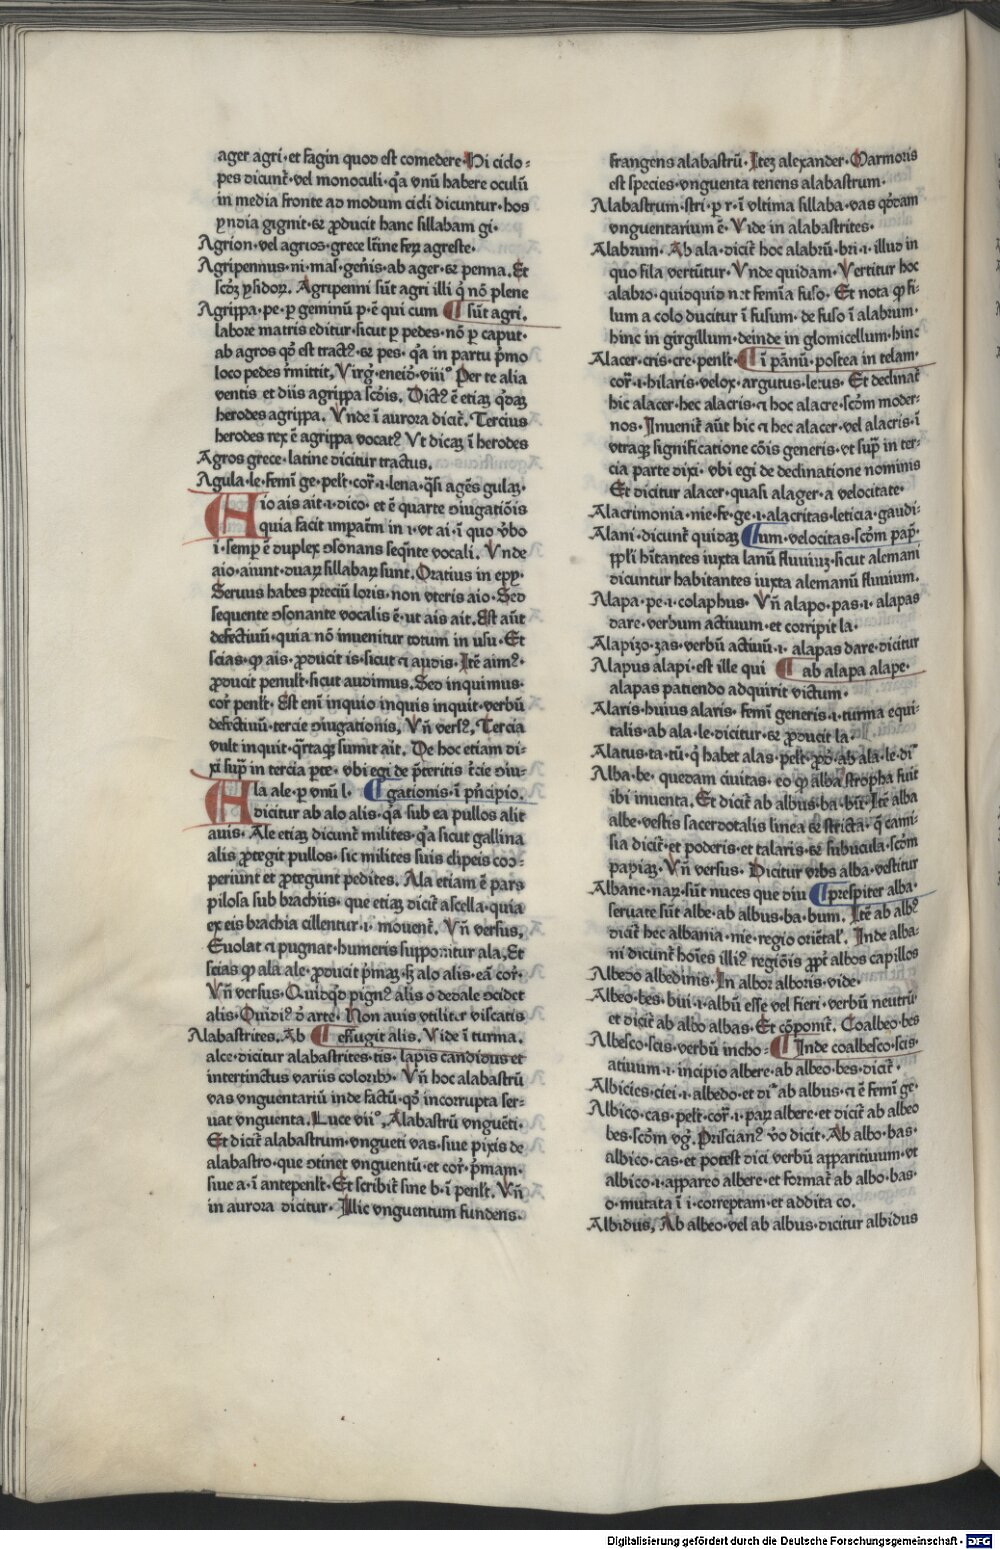 ager agri·et fagin quod est comedere·Hi ciclo⸗
pes dicunt̃·vel monoculi·q̃a vnũ habere oculũ
in media fronte ad modum cicli dicuntur·hos
yndia gignit·⁊ ꝓducit hanc sillabam gi·
Agrion·vel agrios·grece lt̃ine ferꝝ agreste·
Agripennus·ni·mas·geñis·ab ager·⁊ penna. Et
scd̃ꝫ ysidoꝝ. Agripenni sũt agri illi q̃ nõ plene
Agrippa·pe·ꝑ geminũ p·ẽ qui cum ¶ sũt agri.
labore matris editur·sicut ꝑ pedes·nõ ꝑ caput·
ab agros qd̃ est tractꝰ·⁊ pes·q̃a in partu p̃mo
loco pedes ẽmittit. Virg̃·eneid̃·viiiº Per te alia
ventis et diis agrippa scd̃is. Dictꝰ ẽ etiaꝫ q̃daꝫ
herodes agrippa. Vnde ĩ aurora dicit̃. Tercius
herodes rex ẽ agrippa vocatꝰ Vt dicaꝫ ĩ herodes
Agros grece·latine dicitur tractus.
Agula·le·femĩ ge·pelt̃·cor̃·ı·lena·q̃si agẽs gulaꝫ·
Aio ais ait·ı·dico·et ẽ quarte ꝯiugatiõis
quia facit impat̃m in i·vt ai·ĩ quo ṽbo
i·semꝑ ẽ duplex ꝯsonans seqñte vocali. Vnde
aio·aiunt·duaꝝ sillabaꝝ sunt. Oratius in epy·
Seruus habes preciũ loris·non vteris aio·Sed
sequente ꝯsonante vocalis ẽ·ut ais ait. Est aũt
defectiuũ·quia nõ inuenitur totum in usu·Et
scias·ꝙ ais·ꝓducit is·sicut ⁊ audis·Itẽ aimꝰ·
ꝓducit penult̃·sicut audimus. Sed inquimus·
cor̃ penlt̃·Est enĩ inquio inquis inquit·verbũ
defectiuũ·tercie ꝯiugationis. Vñ versꝰ. Tercia
vult inquit·q̃rtaqꝫ sumit ait. De hoc etiam di⸗
xi sup̃ in tercia ꝑte·vbi egi de p̃teritis t̃cie ꝯiu⸗
Ala ale·ꝑ vnũ l· ¶ gationis·ĩ pñcipio.
dicitur ab alo alis·q̃a sub ea pullos alit
auis· Ale etiaꝫ dicunt̃ milites·q̃a sicut gallina
alis ꝓtegit pullos·sic milites suis clipeis coo⸗
periunt et ꝓtegunt pedites. Ala etiam ẽ pars
pilosa sub brachiis·que etiaꝫ dicit̃ ascella·quia
ex eis brachia cillentur·ı·mouent̃. Vñ versus.
Euolat ⁊ pugnat·humeris supponitur ala. Et
scias ꝙ ala ale·ꝓducit p̃maꝫ·sꝫ alo alis·eã cor̃·
Vñ versus·Quidq̃d pignꝰ alis o dedale ꝯcidet
alis·Quidiꝰ d̃ arte·Non auis vtiliter viscatis
Alabastrites. Ab ¶ effugit alis. Vide ĩ turma.
alce·dicitur alabastrites·tis·lapis candidus et
intertinctus variis coloribꝰ·Vñ hoc alabastrũ
vas vnguentariũ inde factũ·qd̃ incorrupta ser⸗
uat vnguenta. Luce viiº. Alabastrũ vnguẽti·
Et dicit̃ alabastrum·vngueti vas·siue pixis de
alabastro·que ꝯtinet vnguentũ·et cor̃·p̃mam·
siue a·ĩ antepenlt̃·Et scribit̃ sine b·ĩ penlt̃. Vñ
in aurora dicitur· Illic vnguentum fundens·
frangens alabastrũ·Iteꝫ alexander·Marmoris
est species·vnguenta tenens alabastrum·
Alabastrum·stri·ꝑ r·ĩ vltima sillaba·vas qd̃dam
vnguentarium ẽ·Vide in alabastrites·
Alabrum· Ab ala·dicit̃ hoc alabrũ·bri·ı·illud in
quo fila vertũtur·Vnde quidam·Vertitur hoc
alabro·quidquid net femĩa fuso· Et nota ꝙ fi⸗
lum a colo ducitur ĩ fusum·de fuso ĩ alabrum·
hinc in girgillum·deinde in glomicellum·hinc
Alacer·cris·cre·penlt̃·¶ ĩ pãnũ·postea in telam·
cor̃·ı·hilaris·velox·argutus·letus· Et declinat̃
hic alacer·hec alacris·⁊ hoc alacre·scd̃m moder⸗
nos·Inuenit̃ aũt hic ⁊ hec alacer·vel alacris·ĩ
vtraqꝫ significatione cõis generis·vt sup̃ in ter⸗
cia parte dixi·vbi egi de declinatione nominis
Et dicitur alacer·quasi alager·a velocitate·
Alacrimonia·nie·fe·ge·ı·alacritas·leticia·gaudi⸗
Alani·dicunt̃ quidaꝫ ¶ um·velocitas·scd̃m pap̃·
ppl̃i hĩtantes iuxta lanũ fluuiuꝫ·sicut alemani
dicuntur habitantes iuxta alemanũ fluuium.
Alapa·pe·ı·colaphus· Vñ alapo·pas·ı·alapas
dare·verbum actiuum·et corripit la·
Alapizo·zas·verbũ actiuũ·ı·alapas dare·dicitur
Alapus alapi·est ille qui ¶ ab alapa alape·
alapas patiendo adquirit victum·
Alaris·huius alaris·femĩ generis·ı·turma equi⸗
talis·ab ala·le·dicitur·⁊ ꝓducit la·
Alatus·ta·tũ·q̃ habet alas·pelt̃·ꝓd̃·ab ala·le·dr̃
Alba·be·quedam ciuitas·eo ꝙ alba stropha fuit
ibi inuenta. Et dicit̃ ab albus·ba·bũ·Itẽ alba
albe·vestis sacerdotalis linea ⁊ stricta·q̃ cami⸗
sia dicit̃·et poderis·et talaris·⁊ subucula·scd̃m
papiaꝫ·Vñ versus· Dicitur vrbs alba·vestitur
Albane·naꝝ·sũt nuces que diu ¶ prespiter alba·
seruate sũt albe·ab albus·ba·bum. Itẽ ab albꝰ
dicit̃ hec albania·nie·regio oriẽtal̃. Inde alba⸗
ni dicunt̃ hoĩes illiꝰ regiõis ꝓpt̃ albos capillos
Albedo albedinis·In albor alboris·vide·
Albeo·bes·bui·ı·albũ esse vel fieri·verbũ neutrũ
et dicit̃ ab albo albas·Et cõponit̃. Coalbeo·bes
Albesco·scis·verbũ incho⸗ ¶ Inde coalbesco·scis·
atiuum·ı·incipio albere·ab albeo·bes·dicit̃·
Albicies·ciei·ı·albedo·et dr̃ ab albus·⁊ ẽ femĩ ge·
Albico·cas·pelt̃·cor̃·ı·paꝝ albere·et dicit̃ ab albeo
bes·scd̃m vg̃. Priscianꝰ ṽo dicit·Ab albo·bas·
albico·cas·et potest dici verbũ apparitiuum·vt
albico·ı·appareo albere·et format̃ ab albo·bas·
o·mutata ĩ i·correptam·et addita co.
Albidus. Ab albeo·vel ab albus·dicitur albidus
Digitalisierung gefördert durch die Deutsche Forschungsgemeinschaft - DFG